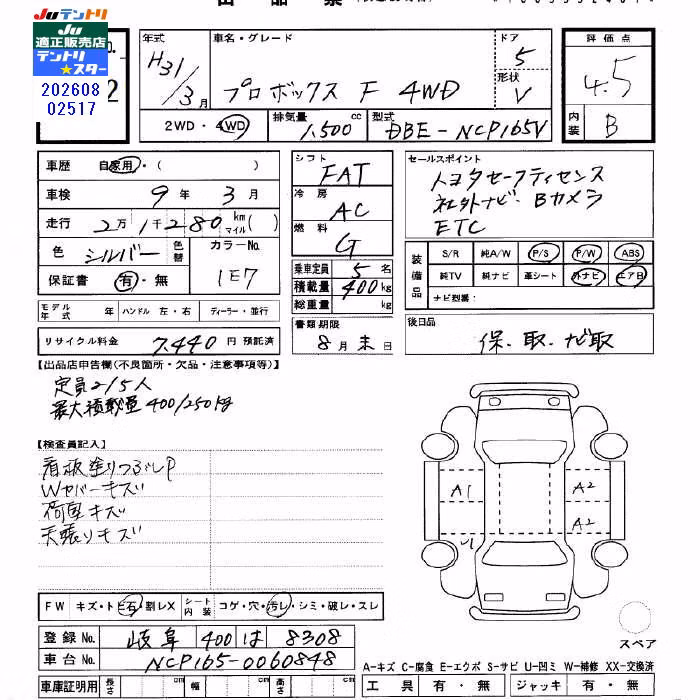 Juテントリ
Ju
適正販売店
テントリ
★スター
202608
02517
2
年式
H31/3月
車名・グレード
プロボックス F 4WD
ドア
5
形状
V
評価点
4.5
内装
B
2WD・4WD
排気量
1,500 cc
型式
DBE-NCP165V
車歴 自家用・( )
車検 9年 3月
走行 2万1千280 km マイル( )
色 シルバー 色替 カラーNo. 1E7
保証書 有・無
シフト
FAT
冷房
AC
燃料
G
乗車定員 5名
積載量 400kg
総重量 kg
書類期限
8月末日
セールスポイント
トヨタセーフティセンス
社外ナビ・Bカメラ
ETC
装備品
S/R 純A/W P/S P/W ABS
純TV 純ナビ 革シート 外ナビ エアB
ナビ型番:
モデル年式 年 ハンドル 左・右 ディーラー・並行
リサイクル料金 7,440 円預託済
後日品
保・取・ナビ取
【出品店申告欄(不良箇所・欠品・注意事項等)】
定員2/5人
最大積載量400/250kg
【検査員記入】
看板塗りつぶしP
Wカバーキズ
荷室キズ
天張りキズ
A1
A2
A2
U1
FW キズ・トビ石・割レX シート内装 コゲ・穴・汚レ・シミ・破レ・スレ
登録No. 岐阜 400 は 8308
車台No. NCP165-0060848
車庫証明用 長さ cm 幅 cm 高さ cm
スペア
A-キズ C-腐食 E-エクボ S-サビ U-凹ミ W-補修 XX-交換済
工具 有・無 ジャッキ 有・無